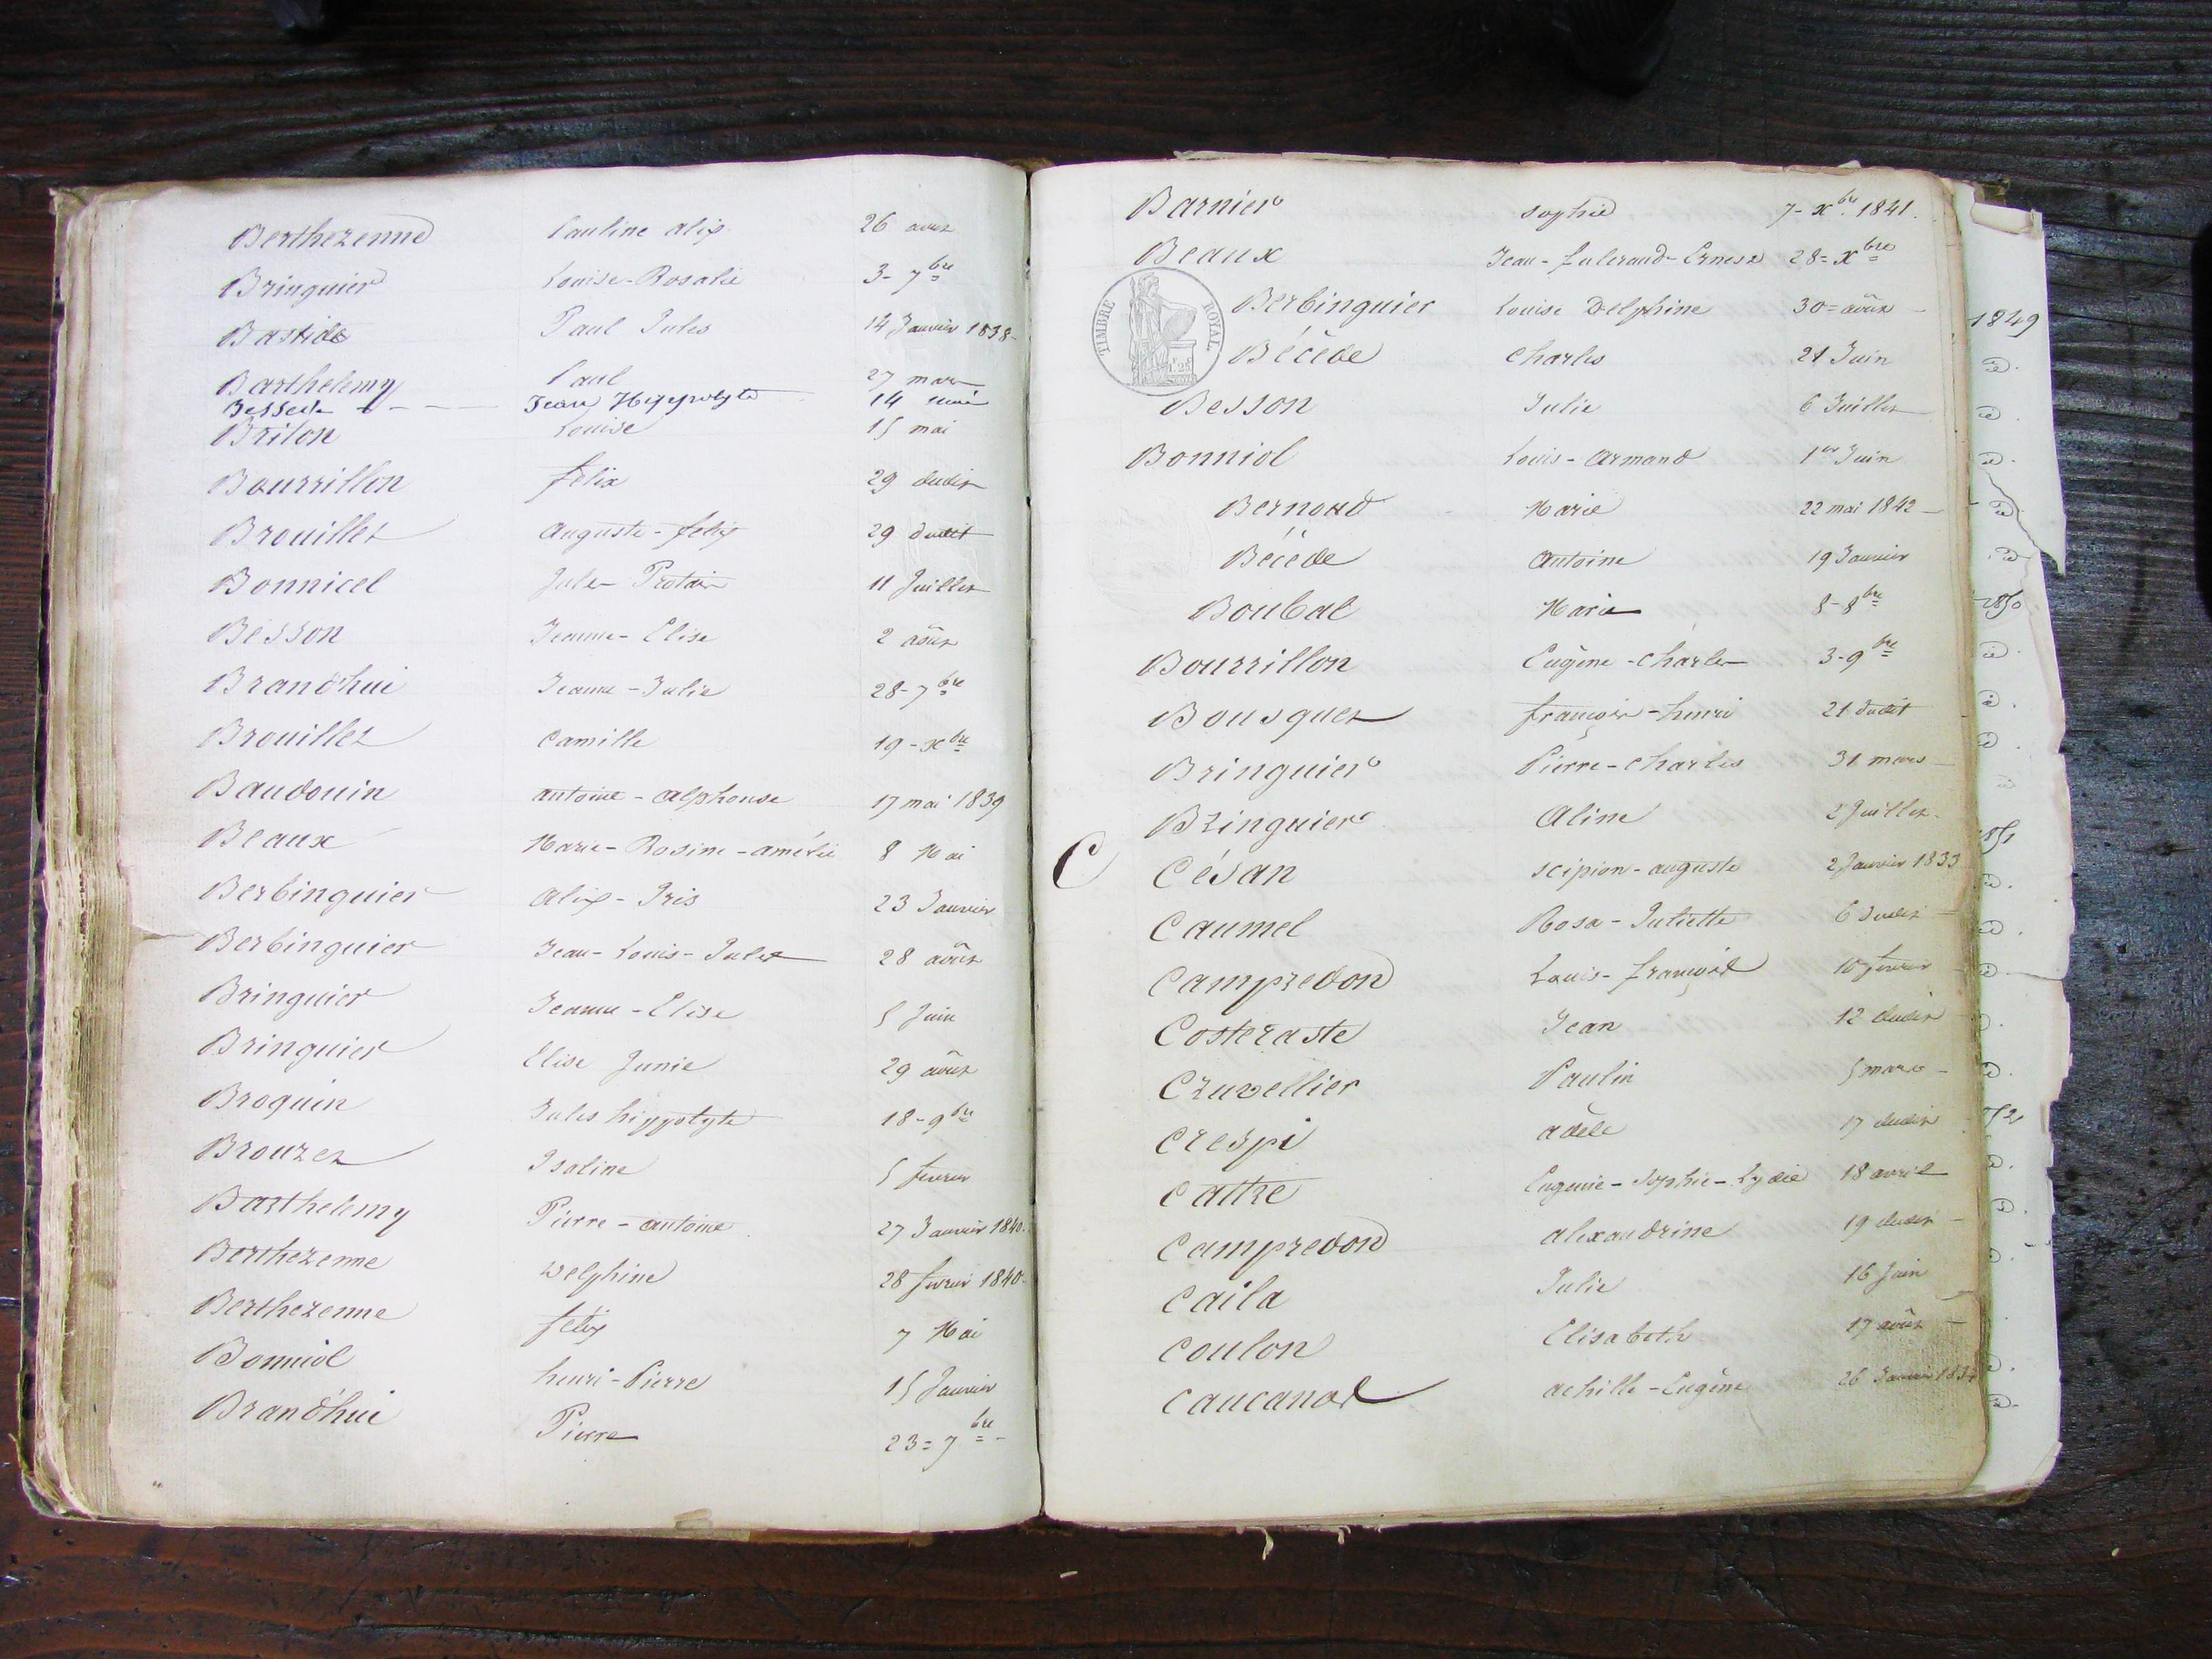 Berthezenne Pauline alix 26 aout
Bringuier Louise-Rosalie 3-7bre
Bastide Paul Jules 14 Janvier 1838-
Barthelemy Paul 27 mars
Jean Hyppolyte 14
Briton Louise 15 mai
Bourrillon félix 29 dudit
Brouillet Auguste-félix 29 dudit
Bonnicel Jules 11 Juillet
Besson Jeanne-Elise 2 août
Brandhui Jeanne-Julie 28-7bre
Brouillet Camille 19-xbre
Baudouin antoine-alphonse 17 mai 1839
Beaux Marie-Rosine-amélie 8 Mai
Berbinguier alix-Iris 23 Janvier
Berbinguier Jean-Louis-Jules 28 août
Bringuier Jeanne-Elise 5 Juin
Bringuier Elise Junie 29 août
Broquin Jules hippolyte 18-9bre
Brouzet Isaline 5 fevrier
Barthelemy Pierre-antoine 27 Janvier 1840.
Berthezenne Delphine 28 fevrier 1840-
Berthezenne félix 7 Mai
Bonniol henri-Pierre 15 Janvier
Brandhui Pierre 23=7bre-
Barnier Sophie 7-xbre 1841.
Beaux Jean-fulcrand-Ernest 28=xbre
TIMBRE ROYAL
Berbinguier Louise Delphine 30=août
Bécède Charles 21 Juin
Besson Julie 6 Juillet
Bonniol Louis-Armand 1er Juin
Bernard Marie 22 mai 1842
Bécède Antoine 19 Janvier
Boubal Marie 8-8bre
Bourrillon Eugène-Charles 3-9bre
Bousquet françois-henri 21 dudit
Bringuier Pierre-Charles 31 mars
Bringuier Aline 2 Juillet
C Césan Scipion-auguste 2 Janvier 1833
Caumel Rosa-Juliette 6 dudit
Campredon Louis-françois 10 fevrier
Costeraste Jean 12 dudit
Cruvellier Paulin 5 mars
Crespi adèle 17 dudit
Cattre Eugenie-Sophie-Lydie 18 avril
Campredon alexandrine 19 dudit
Caila Julie 16 Juin
Coulon Elisabeth 17 août
Caucanas achille-Eugène 26 Janvier 1834
1849